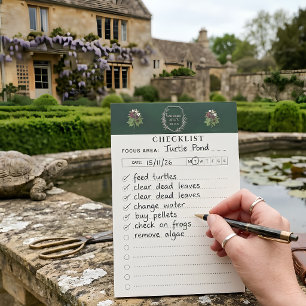 CHECKLIST
FOCUS AREA: Turtle Pond
DATE: 15/11/26 M T W T F S S
feed turtles
clear dead leaves
clear dead leaves
change water
buy pellets
check on frogs
remove algae